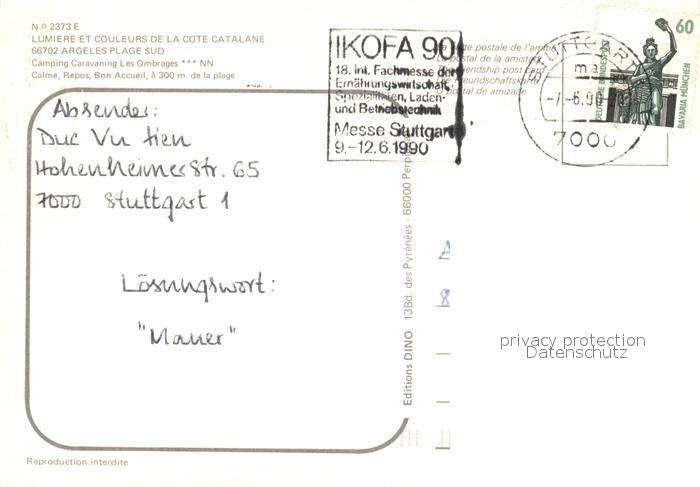 N.º 2373 E
LUMIERE ET COULEURS DE LA COTE CATALANE
66702 ARGELES PLAGE SUD
Camping Caravaning Les Ombrages *** NN
Calme, Repos, Bon Accueil, à 300 m. de la plage
IKOFA 90
18. Int. Fachmesse der
Ernährungswirtschaft,
Spezialitäten, Laden-
und Betriebstechnik
Messe Stuttgart
9.–12.6.1990
carte postale de l'amitié
postal de la amistad
friendship post card
Freundschaftskarte
postal de amizade
STUTTGART
-7.-6.90
7000
60
DEUTSCHE BUNDESPOST
BAVARIA MÜNCHEN
Absender:
Duc Vu tien
Hohenheimer Str. 65
7000 Stuttgart 1
Lösungswort:
"Mauer"
Editions DINO 13Bd. des Pyrénées - 66000 Perp
A
8
privacy protection
Datenschutz
Reproduction interdite